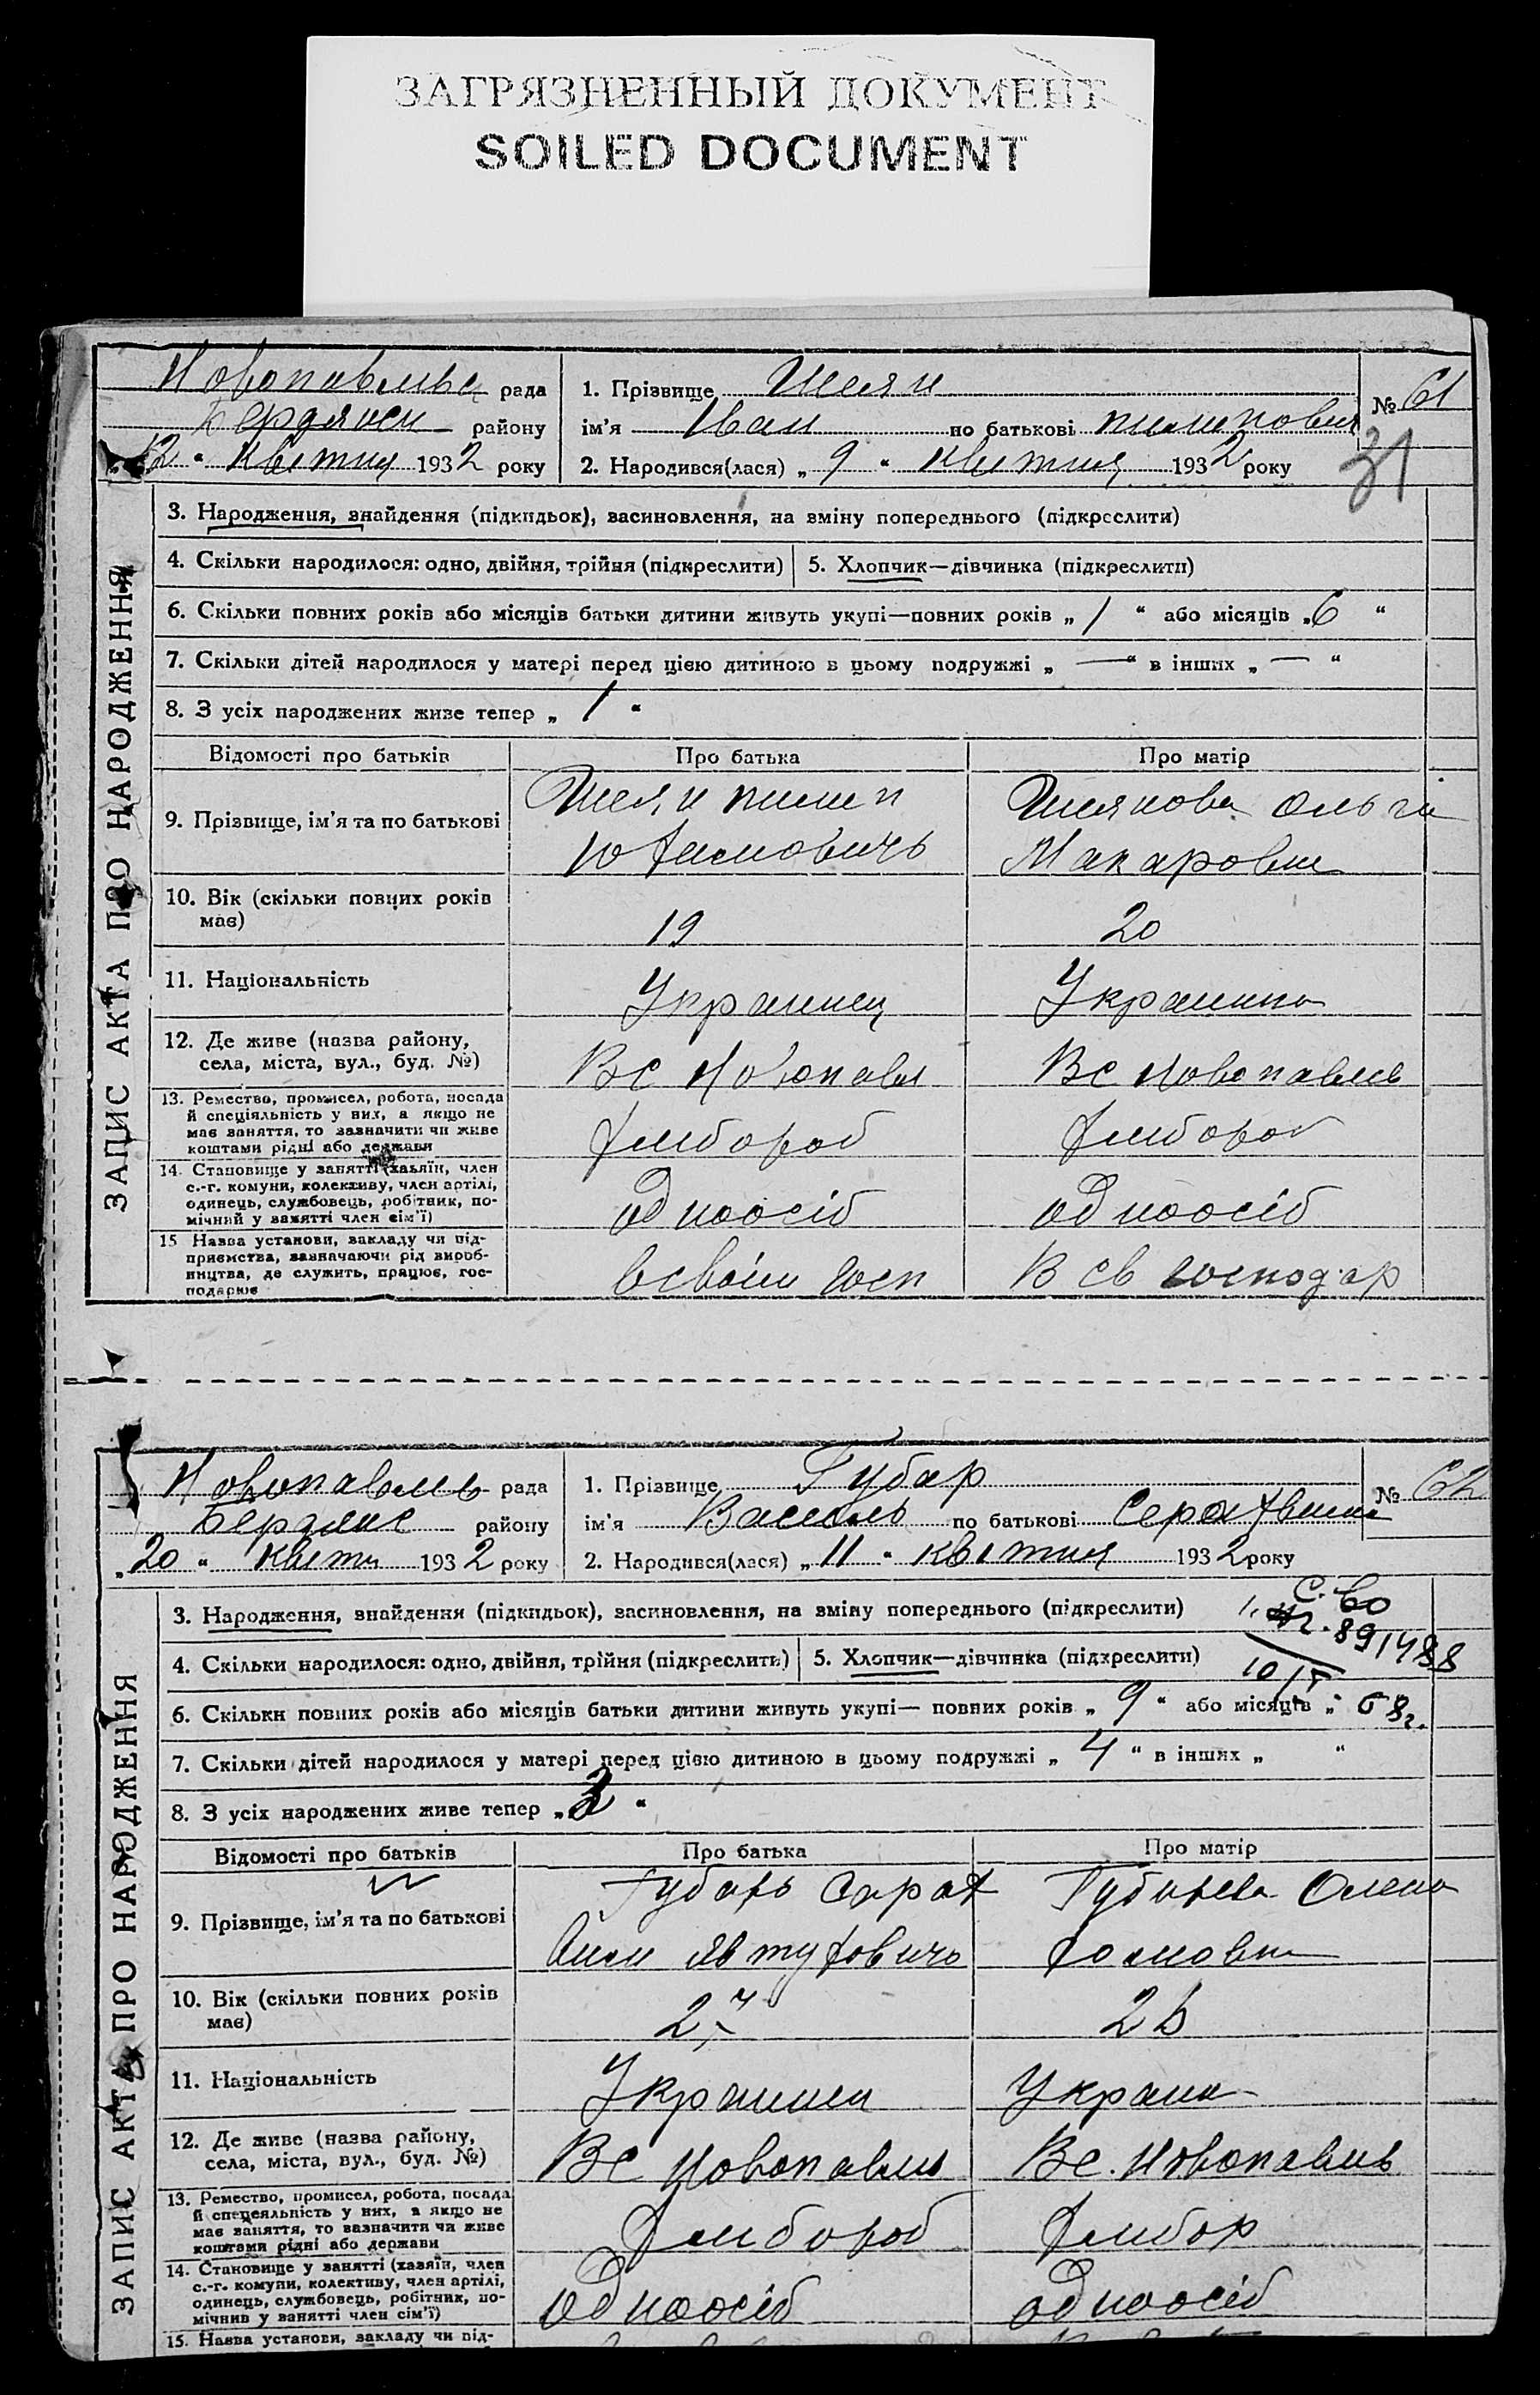 ЗАГРЯЗНЕННЫЙ ДОКУМЕНТ
SOILED DOCUMENT
Новопавлівс рада
Бердянськ району
12 " Квітня 1932 року
1. Прізвище Шеян
ім'я Іван по батькові Пилипович
2. Народився(лася) „ 9 " квітня 1932 року
№ 61
31
ЗАПИС АКТА ПРО НАРОДЖЕННЯ
3. Народження, знайдення (підкидьок), засиновлення, на зміну попереднього (підкреслити)
4. Скільки народилося: одно, двійня, трійня (підкреслити)
5. Хлопчик—дівчинка (підкреслити)
6. Скільки повних років або місяців батьки дитини живуть укупі—повних років „ 1 " або місяців „ 6 "
7. Скільки дітей народилося у матері перед цією дитиною в цьому подружжі „ — " в інших „ — "
8. З усіх народжених живе тепер „ 1 "
Відомості про батьків Про батька Про матір
9. Прізвище, ім'я та по батькові
Шеян пилип
Шеянова Ольга
Макаровна
10. Вік (скільки повних років
має)
19
20
11. Національність
Украинец
Украинка
12. Де живе (назва району,
села, міста, вул., буд. №)
Вс Новопавл
Вс Новопавлів
13. Ремество, промисел, робота, посада
й спеціяльність у них, а якщо не
має заняття, то зазначити чи живе
коштами рідні або держави
хлібороб
хлібороб
14. Становище у занятті (хазяїн, член
с.-г. комуни, колективу, член артілі,
одинець, службовець, робітник, по-
мічний у занятті член сім'ї)
одноосіб
одноосіб
15 Назва установи, закладу чи під-
приємства, зазначаючи рід вироб-
ництва, де служить, працює, гос-
подарює
в своїм госп
В св господар
Новопавлів рада
Бердянс району
„ 20 " квітн 1932 року
1. Прізвище Губар
ім'я Василь по батькові
2. Народився(лася) „ 11 " квітня 1932 року
№ 62
ЗАПИС АКТА ПРО НАРОДЖЕННЯ
3. Народження, знайдення (підкидьок), засиновлення, на зміну попереднього (підкреслити)
С-во
891488
4. Скільки народилося: одно, двійня, трійня (підкреслити)
5. Хлопчик—дівчинка (підкреслити)
6. Скільки повних років або місяців батьки дитини живуть укупі— повних років „ 9 " або місяців „
58г.
7. Скільки дітей народилося у матері перед цією дитиною в цьому подружжі „ 4 " в інших „ "
8. З усіх народжених живе тепер „ 3 "
Відомості про батьків Про батька Про матір
9. Прізвище, ім'я та по батькові
Губарь Сараф
Явтуховичь
Губарева Олена
10. Вік (скільки повних років
має)
27
11. Національність
Украинец
Украин
12. Де живе (назва району,
села, міста, вул., буд. №)
Вс Новопавлів
Вс. Новопавлів
13. Ремество, промисел, робота, посада
й спецеяльність у них, а якщо не
має заняття, то зазначити чи живе
коштами рідні або держави
хлібороб
хлібор
14. Становище у занятті (хазяїн, член
с.-г. комуни, колективу, член артілі,
одинець, службовець, робітник, по-
мічнив у занятті член сім'ї)
одноосіб
одноосіб
15. Назва установи, закладу чи під-